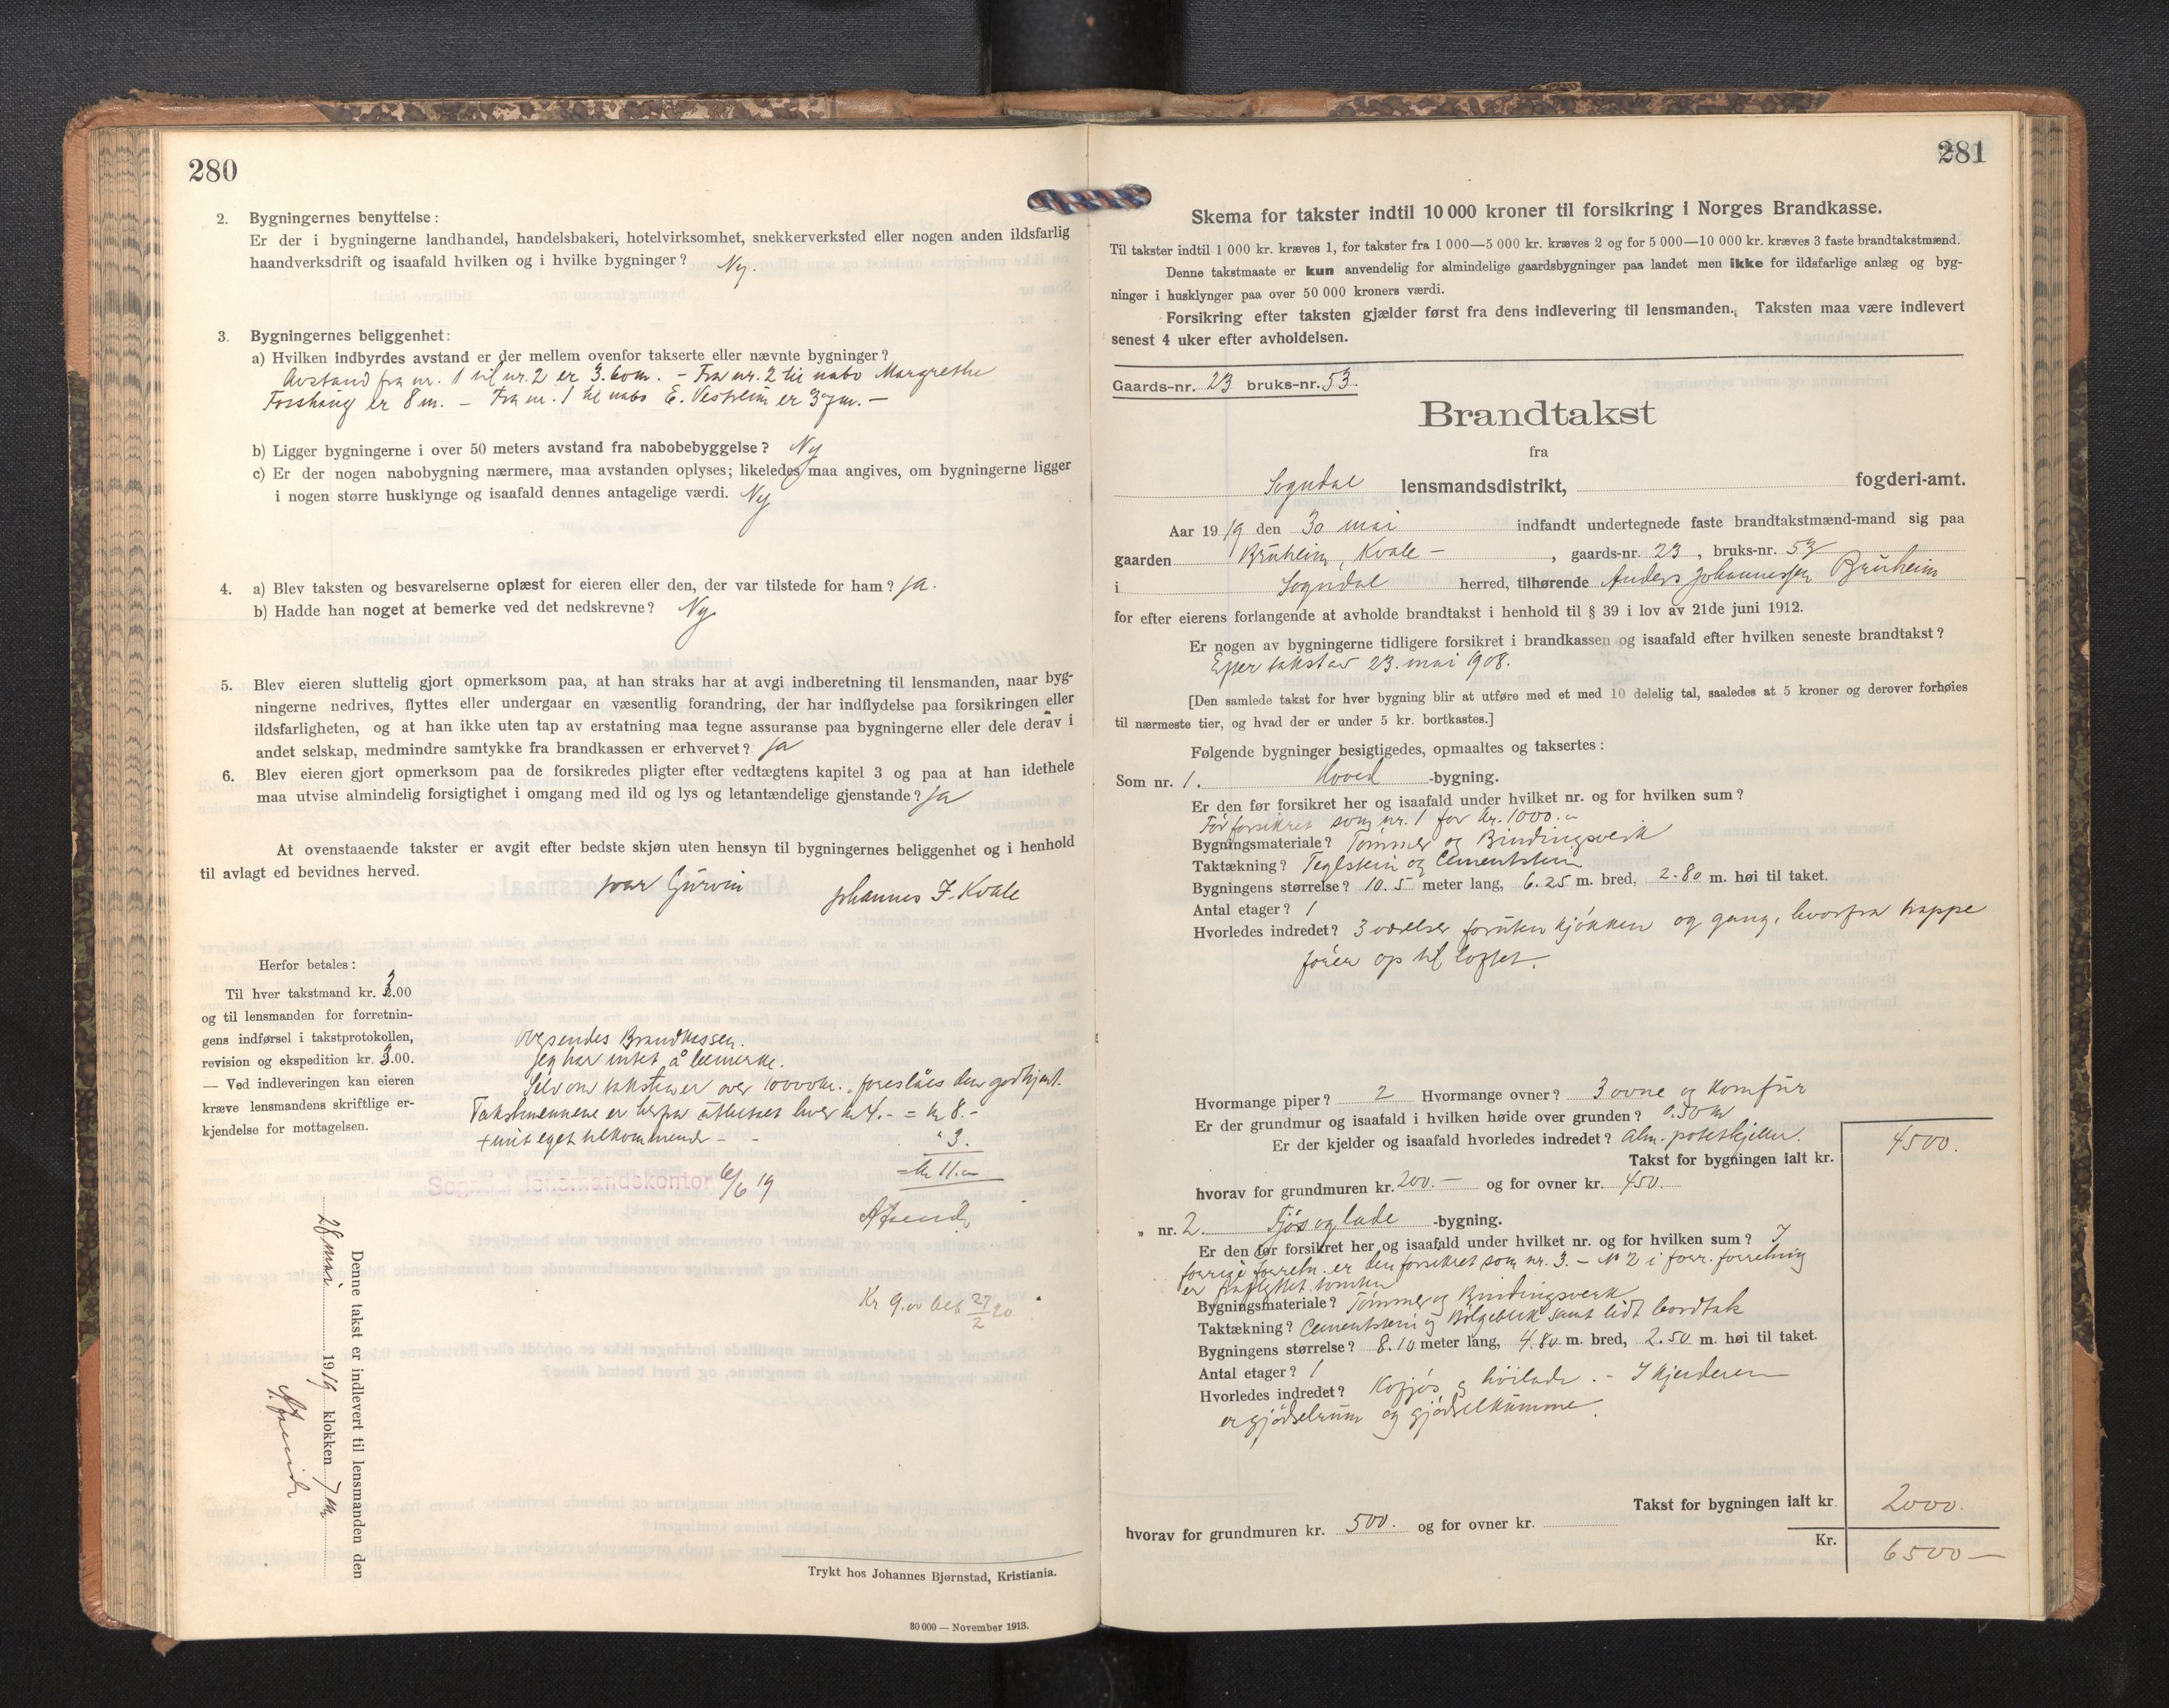 280
2. Bygningernes benyttelse:
Er der i bygningerne landhandel, handelsbakeri, hotelvirksomhet, snekkerverksted eller nogen anden ildsfarlig
haandverksdrift og isaafald hvilken og i hvilke bygninger? Ny.
3. Bygningernes beliggenhet:
a) Hvilken indbyrdes avstand er der mellem ovenfor takserte eller nævnte bygninger?
Avstand fra nr. 1 til nr. 2 er 3.60m. - Fra nr. 2 til nabo Margrethe
Fosshaug er 8 m. - Fra nr. 1 til nabo E. Vestreim er 37m. -
b) Ligger bygningerne i over 50 meters avstand fra nabobebyggelse? Ny
c) Er der nogen nabobygning nærmere, maa avstanden oplyses; likeledes maa angives, om bygningerne ligger
i nogen større husklynge og isaafald dennes antagelige værdi. Ny
4. a) Blev taksten og besvarelserne oplæst for eieren eller den, der var tilstede for ham? ja.
b) Hadde han noget at bemerke ved det nedskrevne? Ny
5. Blev eieren sluttelig gjort opmerksom paa, at han straks har at avgi indberetning til lensmanden, naar byg-
ningerne nedrives, flyttes eller undergaar en væsentlig forandring, der har indflydelse paa forsikringen eller
ildsfarligheten, og at han ikke uten tap av erstatning maa tegne assuranse paa bygningerne eller dele derav i
andet selskap, medmindre samtykke fra brandkassen er erhvervet? ja
6. Blev eieren gjort opmerksom paa de forsikredes pligter efter vedtægtens kapitel 3 og paa at han idethele
maa utvise almindelig forsigtighet i omgang med ild og lys og letantændelige gjenstande? ja
At ovenstaaende takster er avgit efter bedste skjøn uten hensyn til bygningernes beliggenhet og i henhold
til avlagt ed bevidnes herved.
Ivar Gurvin Johannes J. Kvale
Herfor betales:
Til hver takstmand kr. 3.00
og til lensmanden for forretnin-
gens indførsel i takstprotokollen,
revision og ekspedition kr. 3.00.
— Ved indleveringen kan eieren
kræve lensmandens skriftlige er-
kjendelse for mottagelsen.
Oversendes Brandkassen.
Jeg har intet å bemerke.
Selv om taksten er over 10000kr. foreslåes den godkjent.
Takstmennene er herfra utbetalt hver kr 4.- = kr 8.-
+ mit eget tilkommende - - " 3.
= kr 11.-
Sogndal lensmandskontor 6/6 19
Kr 9.00 bet 27/2 20
Denne takst er indlevert til lensmanden den
28 mai 1919 klokken 7 em
Trykt hos Johannes Bjørnstad, Kristiania.
30 000 — November 1913.
281
Skema for takster indtil 10 000 kroner til forsikring i Norges Brandkasse.
Til takster indtil 1 000 kr. kræves 1, for takster fra 1 000—5 000 kr. kræves 2 og for 5 000—10 000 kr. kræves 3 faste brandtakstmænd.
Denne takstmaate er kun anvendelig for almindelige gaardsbygninger paa landet men ikke for ildsfarlige anlæg og byg-
ninger i husklynger paa over 50 000 kroners værdi.
Forsikring efter taksten gjælder først fra dens indlevering til lensmanden. Taksten maa være indlevert
senest 4 uker efter avholdelsen.
Gaards-nr. 23 bruks-nr. 53.
Brandtakst
fra
Sogndal lensmandsdistrikt, fogderi-amt.
Aar 1919 den 30 mai indfandt undertegnede faste brandtakstmænd-mand sig paa
gaarden Bruheim, Kvale - , gaards-nr. 23, bruks-nr. 53
i Sogndal herred, tilhørende Anders Johannessen Bruheim
for efter eierens forlangende at avholde brandtakst i henhold til § 39 i lov av 21de juni 1912.
Er nogen av bygningerne tidligere forsikret i brandkassen og isaafald efter hvilken seneste brandtakst?
Efter takst av 23. mai 1908.
[Den samlede takst for hver bygning blir at utføre med et med 10 delelig tal, saaledes at 5 kroner og derover forhøies
til nærmeste tier, og hvad der er under 5 kr. bortkastes.]
Følgende bygninger besigtigedes, opmaaltes og taksertes:
Som nr. 1. Hoved -bygning.
Er den før forsikret her og isaafald under hvilket nr. og for hvilken sum?
Før forsikret som nr. 1 for kr. 1000.-
Bygningsmateriale? Tømmer og Bindingsverk
Taktækning? Teglstein og Cementstein
Bygningens størrelse? 10.5 meter lang, 6.25 m. bred, 2.80 m. høi til taket.
Antal etager? 1
Hvorledes indredet? 3 værelser foruten kjøkken og gang, hvorfra trappe
fører op til loftet.
Hvormange piper? 2 Hvormange ovner? 3 ovne og komfur
Er der grundmur og isaafald i hvilken høide over grunden? 0.50 m
Er der kjelder og isaafald hvorledes indredet? Alm. potetkjeller.
Takst for bygningen ialt kr. 4500.
hvorav for grundmuren kr. 200.- og for ovner kr. 450.
" nr. 2. Fjøs og lade -bygning.
Er den før forsikret her og isaafald under hvilket nr. og for hvilken sum? I
forrige forretn. er den forsikret som nr. 3. - Nr 2 i forr. forretning
er fraflyttet tomten
Bygningsmateriale? Tømmer og Bindingsverk
Taktækning? Cementstein og Bølgeblik samt lidt bordtak
Bygningens størrelse? 8.10 meter lang, 4.80 m. bred, 2.50 m. høi til taket.
Antal etager? 1
Hvorledes indredet? Kofjøs og høilade. - I kjelderen
er gjødselrum og gjødselkumme.
Takst for bygningen ialt kr. 2000.
hvorav for grundmuren kr. 500. og for ovner kr.
Kr. 6500 —